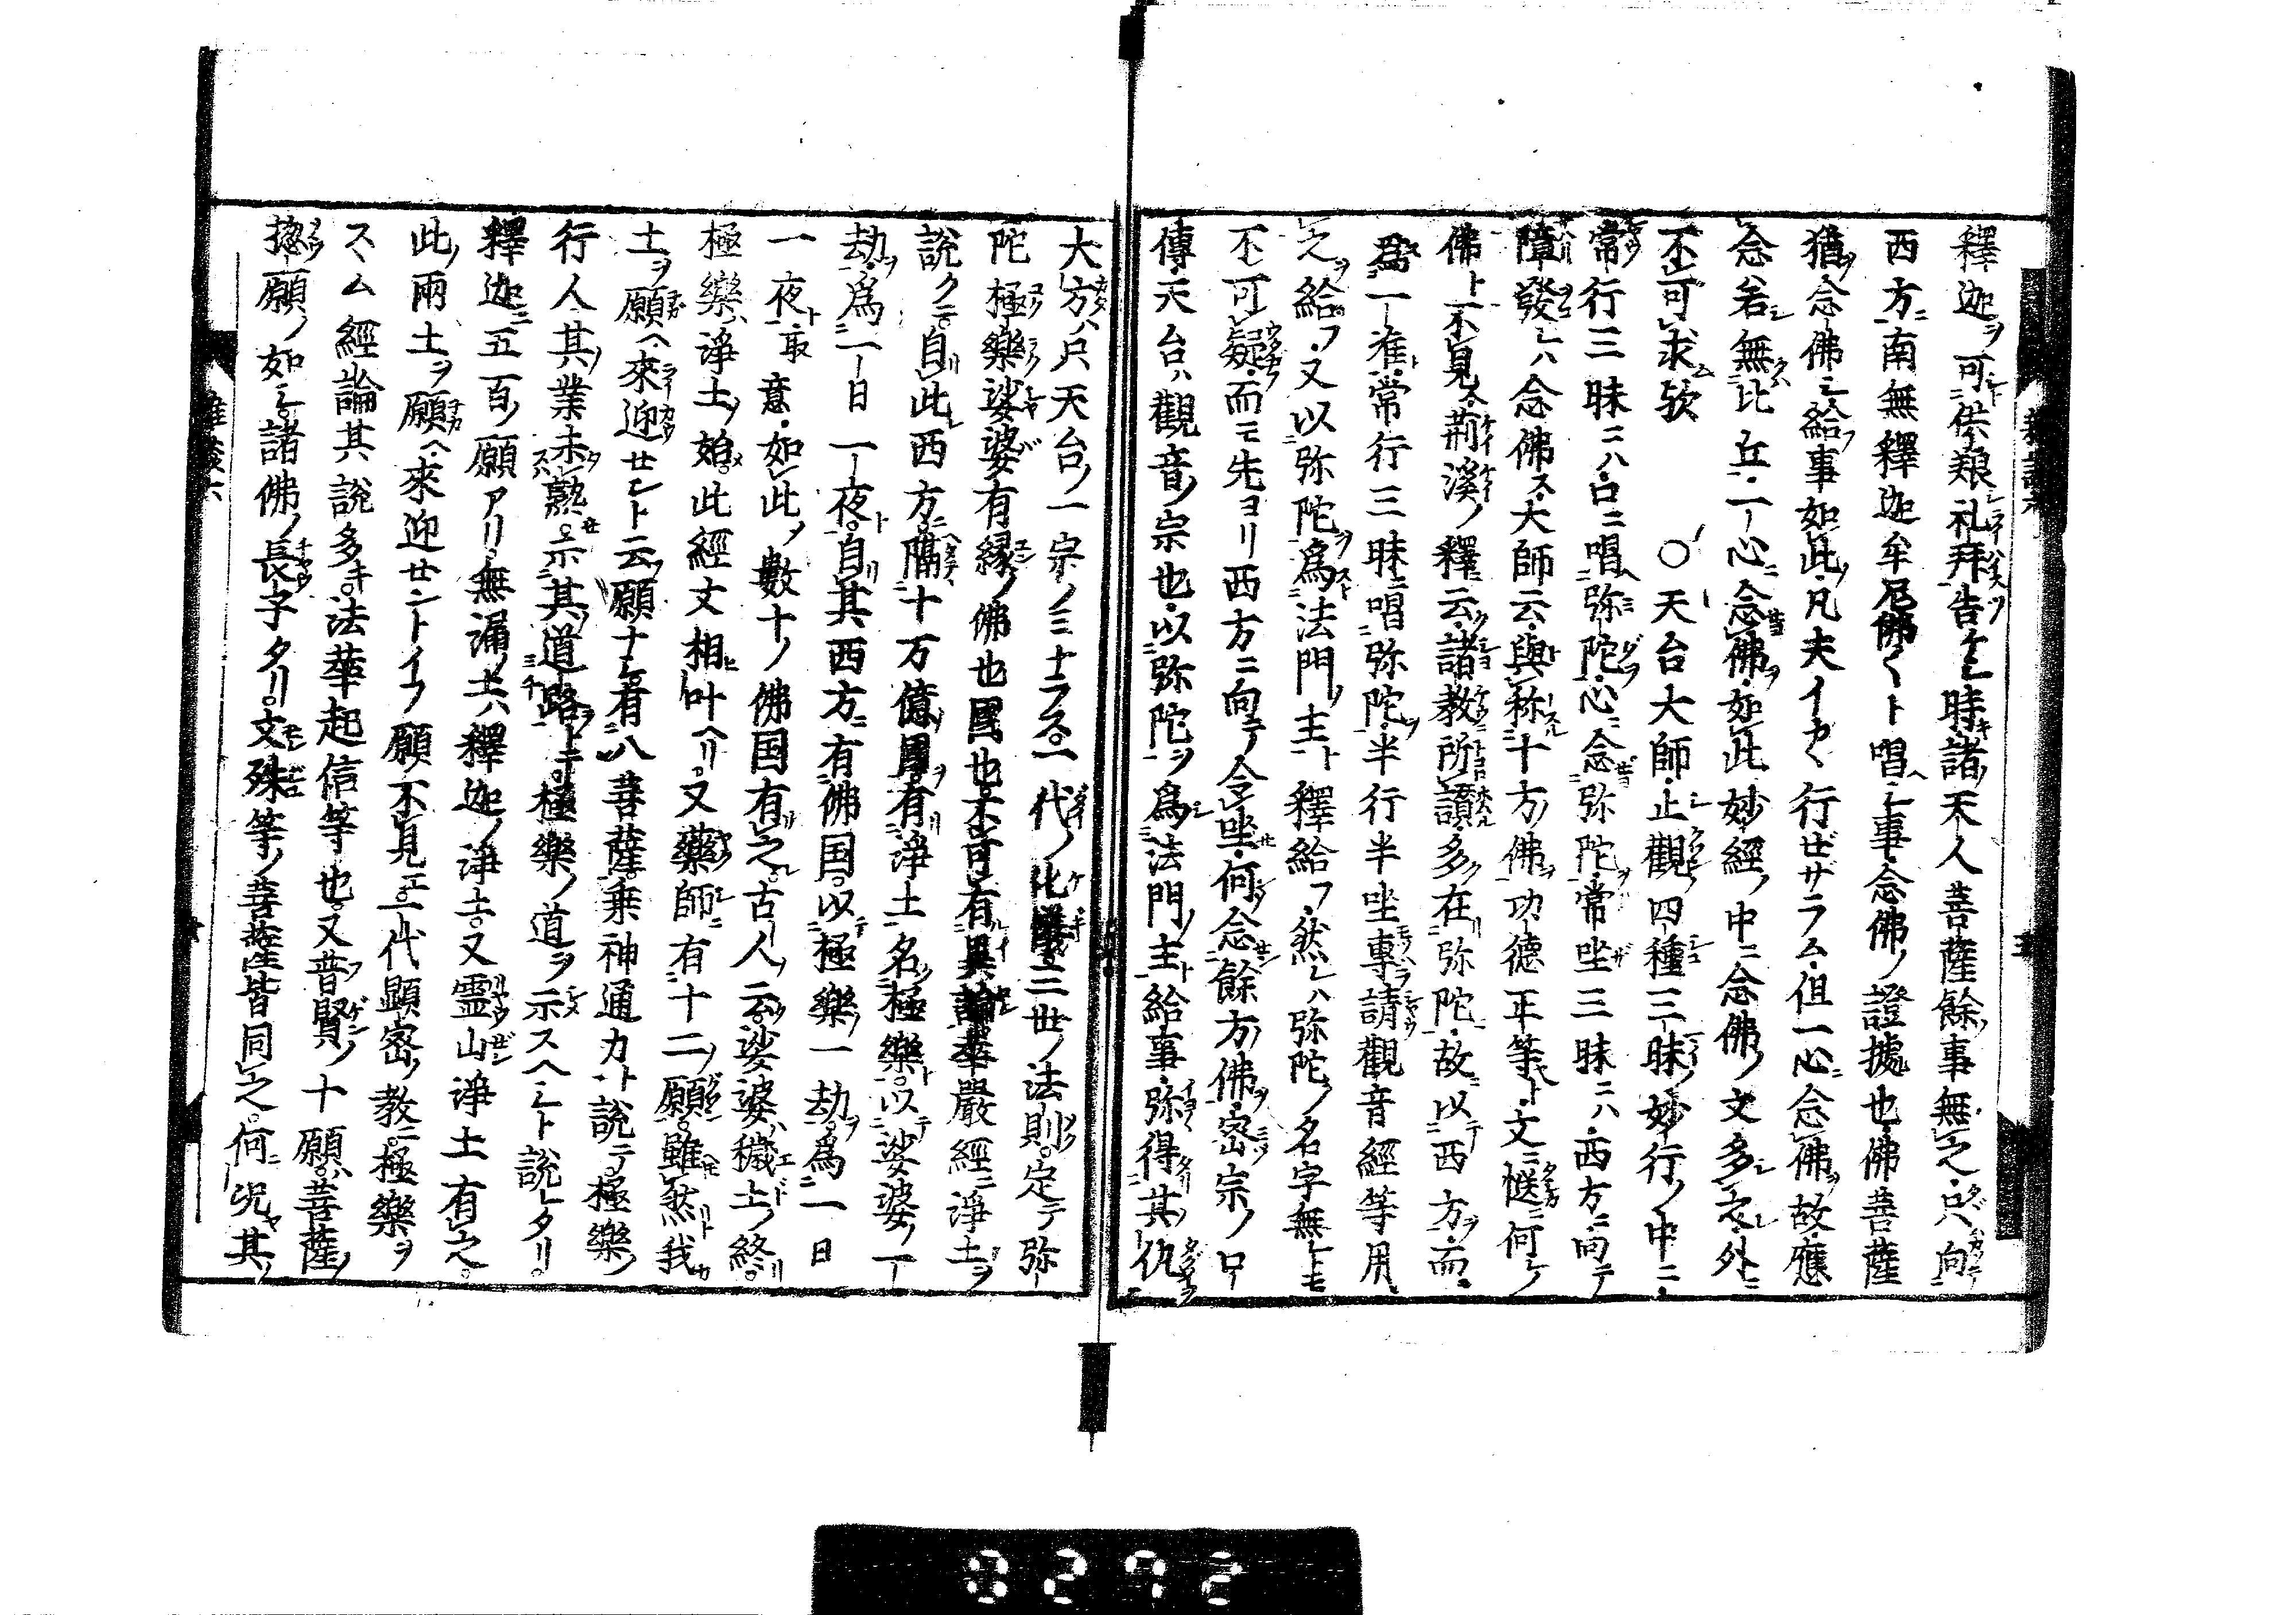 釋迦ヲ可供粮礼拜告ケシ時諸天人菩薩餘事無之只向
西方南無釋迦牟尼佛〱ト唱ヘシ事念佛ノ證據也佛菩薩
猶念佛シ給フ事如此凡夫イカヽ行ゼザラム但一心念佛故應
念若無比丘一心念佛如此妙經ノ中ニ念佛ノ文多之外ニ
不可求欤 〇天台大師止觀四種三昧ノ妙行ノ中ニ
常行三昧ニハ口ニ唱弥陀心ニ念弥陀常坐三昧ニハ西方ニ向テ
障發レハ念佛ス大師云與称十方佛功德正等ト文ニ何レノ
佛ト不見荊溪ノ釋云諸教所讃多在弥陀故以西方而
爲一准常行三昧唱弥陀半行半坐專請觀音經等用
之給フ又以弥陀爲法門主ト釋給フ然レハ弥陀ノ名字無トモ
不可疑而モ先ヨリ西方ニ向テ令坐何念餘方佛密宗ノ口
傳天台ハ觀音ノ宗也以弥陀ヲ爲法門ノ主給事弥得其仇
大方ハ只天台ノ一宗ノミナラス一代ノ化三世ノ法則定テ弥
陀極樂娑婆有縁ノ佛也國也有異華嚴經ニ淨土ヲ
說クニ自此西方隔十万億國有淨土名極樂以娑婆ノ一
劫爲一日一夜自其西方有佛国以極樂ノ一劫爲一日
一夜取意如此ノ數十ノ佛国有之古人云娑婆ハ穢土ノ終
極樂ハ淨土ノ始此經文相叶ヘリ又藥師有十二ノ願雖然我
土ヲ願ヘ來迎セント云願ナシ有八菩薩乘神通力ト說テ極樂ノ
行人其業未熟示其道路ニ極樂ノ道ヲ示スヘシト說レタリ
釋迦五百ノ願アリ無漏ノ土ハ釋迦ノ淨土又霊山淨土有之
此兩土ヲ願ヘ來迎セントイフ願不見一代顯密ノ教ニ極樂ヲ
スヽム經論其說多キ法華起信等也又普賢ノ十願ハ菩薩ノ
惣願ノ如シ諸佛ノ長子タリ文殊等ノ菩薩皆同之何況其
8272